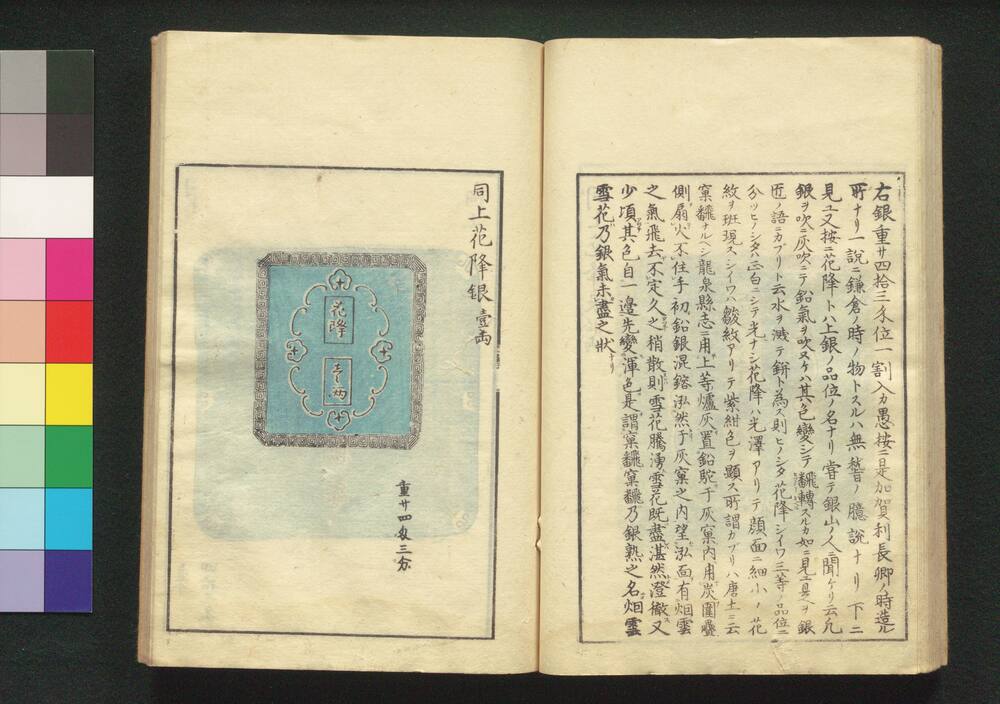 右銀重サ四拾三匁位一割入カ愚按ニ是加賀利長卿ノ時造ル
所ナリ一説ニ鎌倉ノ時ノ物トスルハ無稽ノ臆説ナリ下ニ
見ユ又按ニ花降トハ上銀ノ品位ノ名ナリ嘗テ銀山ノ人ニ聞ケリ云凡
銀ヲ吹ニ灰吹ニテ鉛氣ヲ吹ヌケハ其色變シテ飜轉スルカ如ニ見ユ是ヲ銀
匠ノ語ニカブリト云水ヲ濺テ餅ト為ス則ヒノシタ花降シイワ三等ノ品位ニ
分ツヒノシタハ正白ニシテ光ナシ花降ハ光澤アリテ顔面ニ細小ノ花
紋ヲ班現スシイワハ皺紋アリテ紫紺色ヲ顯ス所謂カブリハ唐土ニ云
窠飜ナルヘシ龍泉縣志ニ用上等爐灰置鉛駝于灰窠内用炭圍疊
側扇火不住手初鉛銀混鎔泓然于灰窠之内望泓面有烟雲
之氣飛去不定久之稍散則雪花騰湧雪花既盡湛然澄徹又
少頃其色自一邉先變渾色是謂窠飜窠飜乃銀熟之名烟雲
雪花乃銀氣未盡之状ナリ
同上花降銀壹兩
花降
壹兩
重サ四匁三分